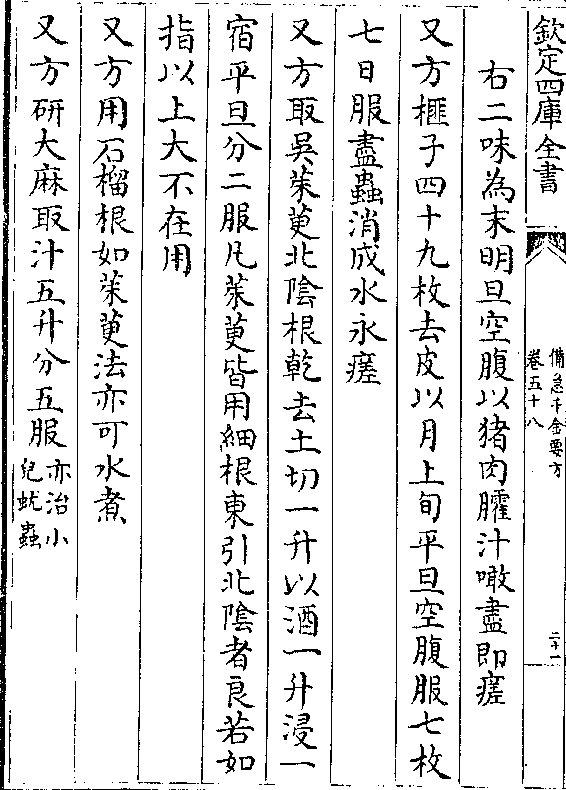 欽定四庫全書
備急千金要方
卷五十八
二十一
右二味為末明旦空腹以猪肉臛汁噉盡即瘥
又方榧子四十九枚去皮以月上旬平旦空腹服七枚
七日服盡蟲消成水永瘥
又方取吳茱萸北陰根乾去土切一升以酒一升浸一
宿平旦分二服凡茱萸皆用細根東引北陰者良若如
指以上大不在用
又方用石榴根如茱萸法亦可水煮
又方研大麻取汁五升分五服亦治小
兒蚘蟲